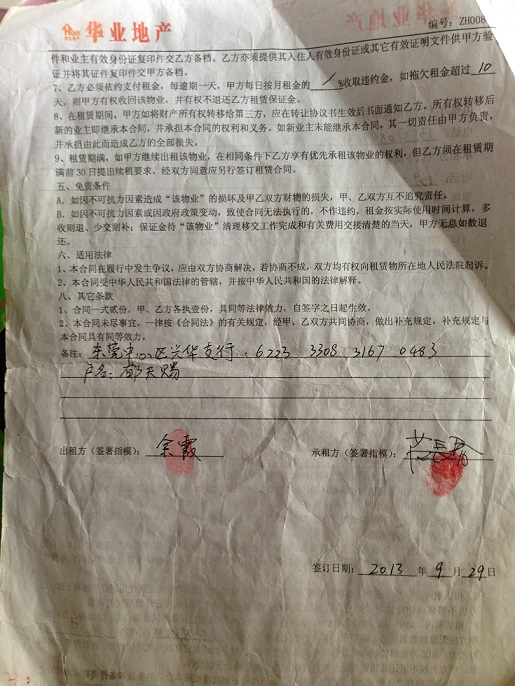 华业地产
编号：ZH008
件和业主有效身份证复印件交乙方备档。乙方亦须提供其入住人有效身份证或其它有效证明文件供甲方验
证并将其证件复印件交甲方备档。
7、乙方必须依约支付租金，每逾期一天，甲方每日按月租金的 1 %收取违约金，如拖欠租金超过 10
天，则甲方有权收回该物业，并有权不退还乙方租赁保证金。
8、在租赁期间，甲方如将财产所有权转移给第三方，应在转让协议书生效后书面通知乙方，所有权转移后
新的业主即继承本合同，并承担本合同的权利和义务，如新业主未能继承本合同，其一切责任由甲方负责，
并承担由此而造成乙方的全部损失。
9、租赁期满，如甲方继续出租该物业，在相同条件下乙方享有优先承租该物业的权利，但乙方须在租赁期
满前30日提出续租要求，经双方同意后另行签订租赁合同。
五、免责条件
A、如因不可抗力因素造成“该物业”的损坏及甲乙双方财物的损失，甲、乙双方互不追究责任。
B、如因不可抗力因素或因政府政策变动，致使合同无法执行的，不作违约，租金按实际使用时间计算，多
收则退、少交则补；保证金待“该物业”清理移交工作完成和有关费用交接清楚的当天，甲方无息如数退
还。
六、适用法律
1、本合同在履行中发生争议，应由双方协商解决，若协商不成，双方均有权向租赁物所在地人民法院起诉。
2、本合同受中华人民共和国法律的管辖，并按中华人民共和国的法律解释。
八、其它条款
1、合同一式贰份，甲、乙方各执壹份，具同等法律效力，自签字之日起生效。
2、本合同未尽事宜，一律按《合同法》的有关规定，经甲、乙双方共同协商，做出补充规定，补充规定与
本合同具有同等效力。
备注：东莞市 区兴华支行：6223 3308 3167 0483
户名：天赐
出租方（签署指模）：余霞
承租方（签署指模）：
签订日期：2013 年 9 月 29 日